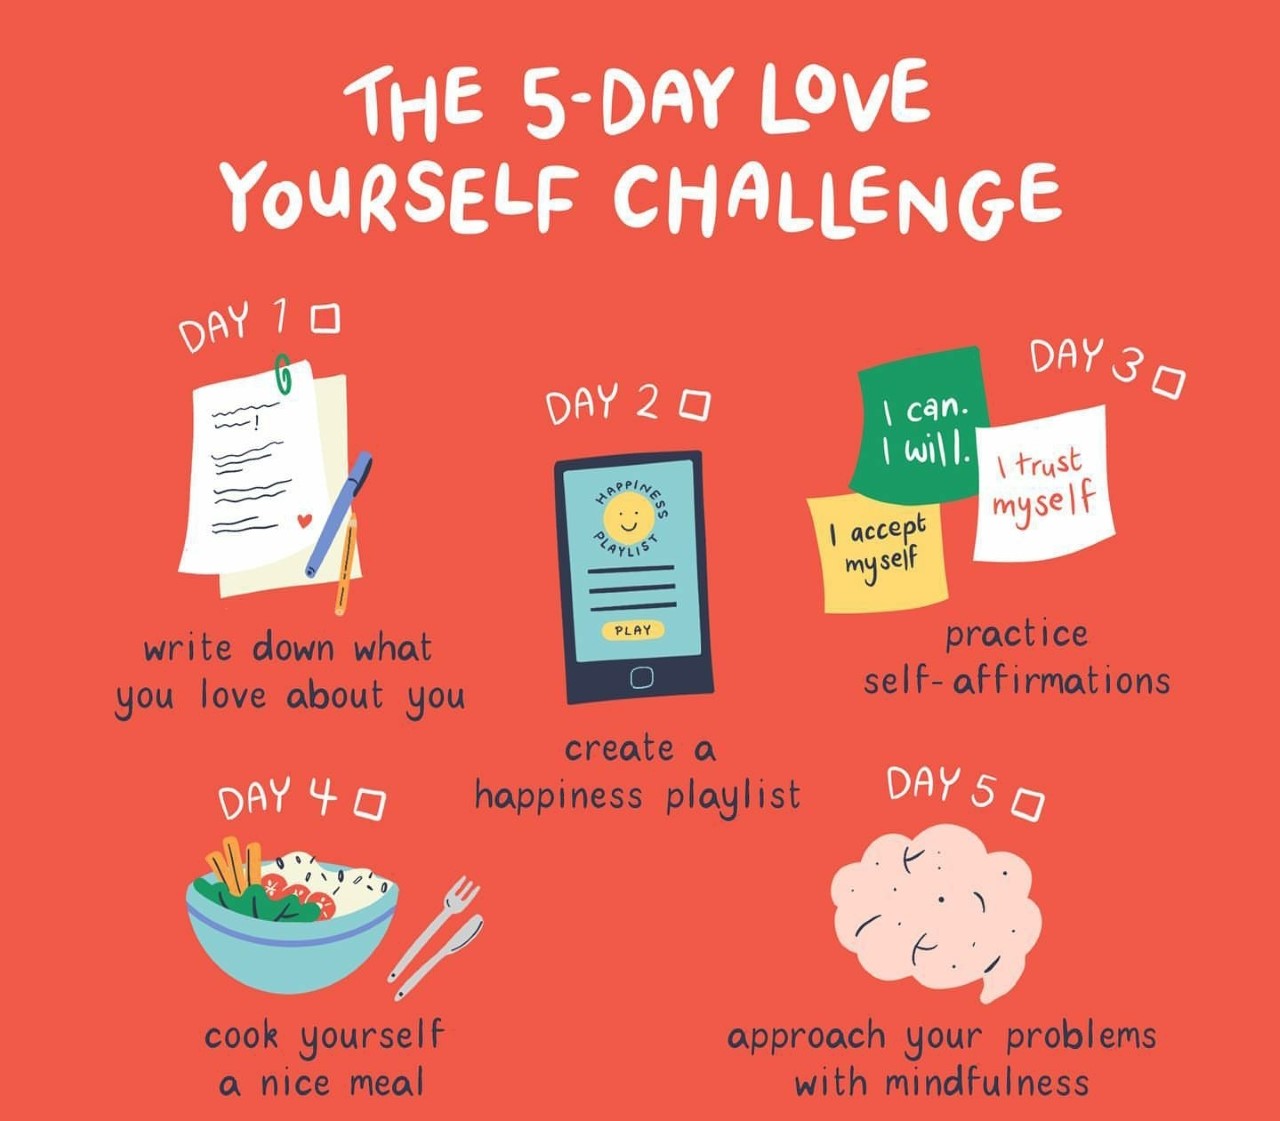 THE 5-DAY LOVE
YOURSELF CHALLENGE
DAY 1
write down what
you love about you
DAY 2
HAPPINESS
PLAYLIST
PLAY
create a
happiness playlist
DAY 3
I can.
I will.
I trust
myself
I accept
myself
practice
self-affirmations
DAY 4
cook yourself
a nice meal
DAY 5
approach your problems
with mindfulness